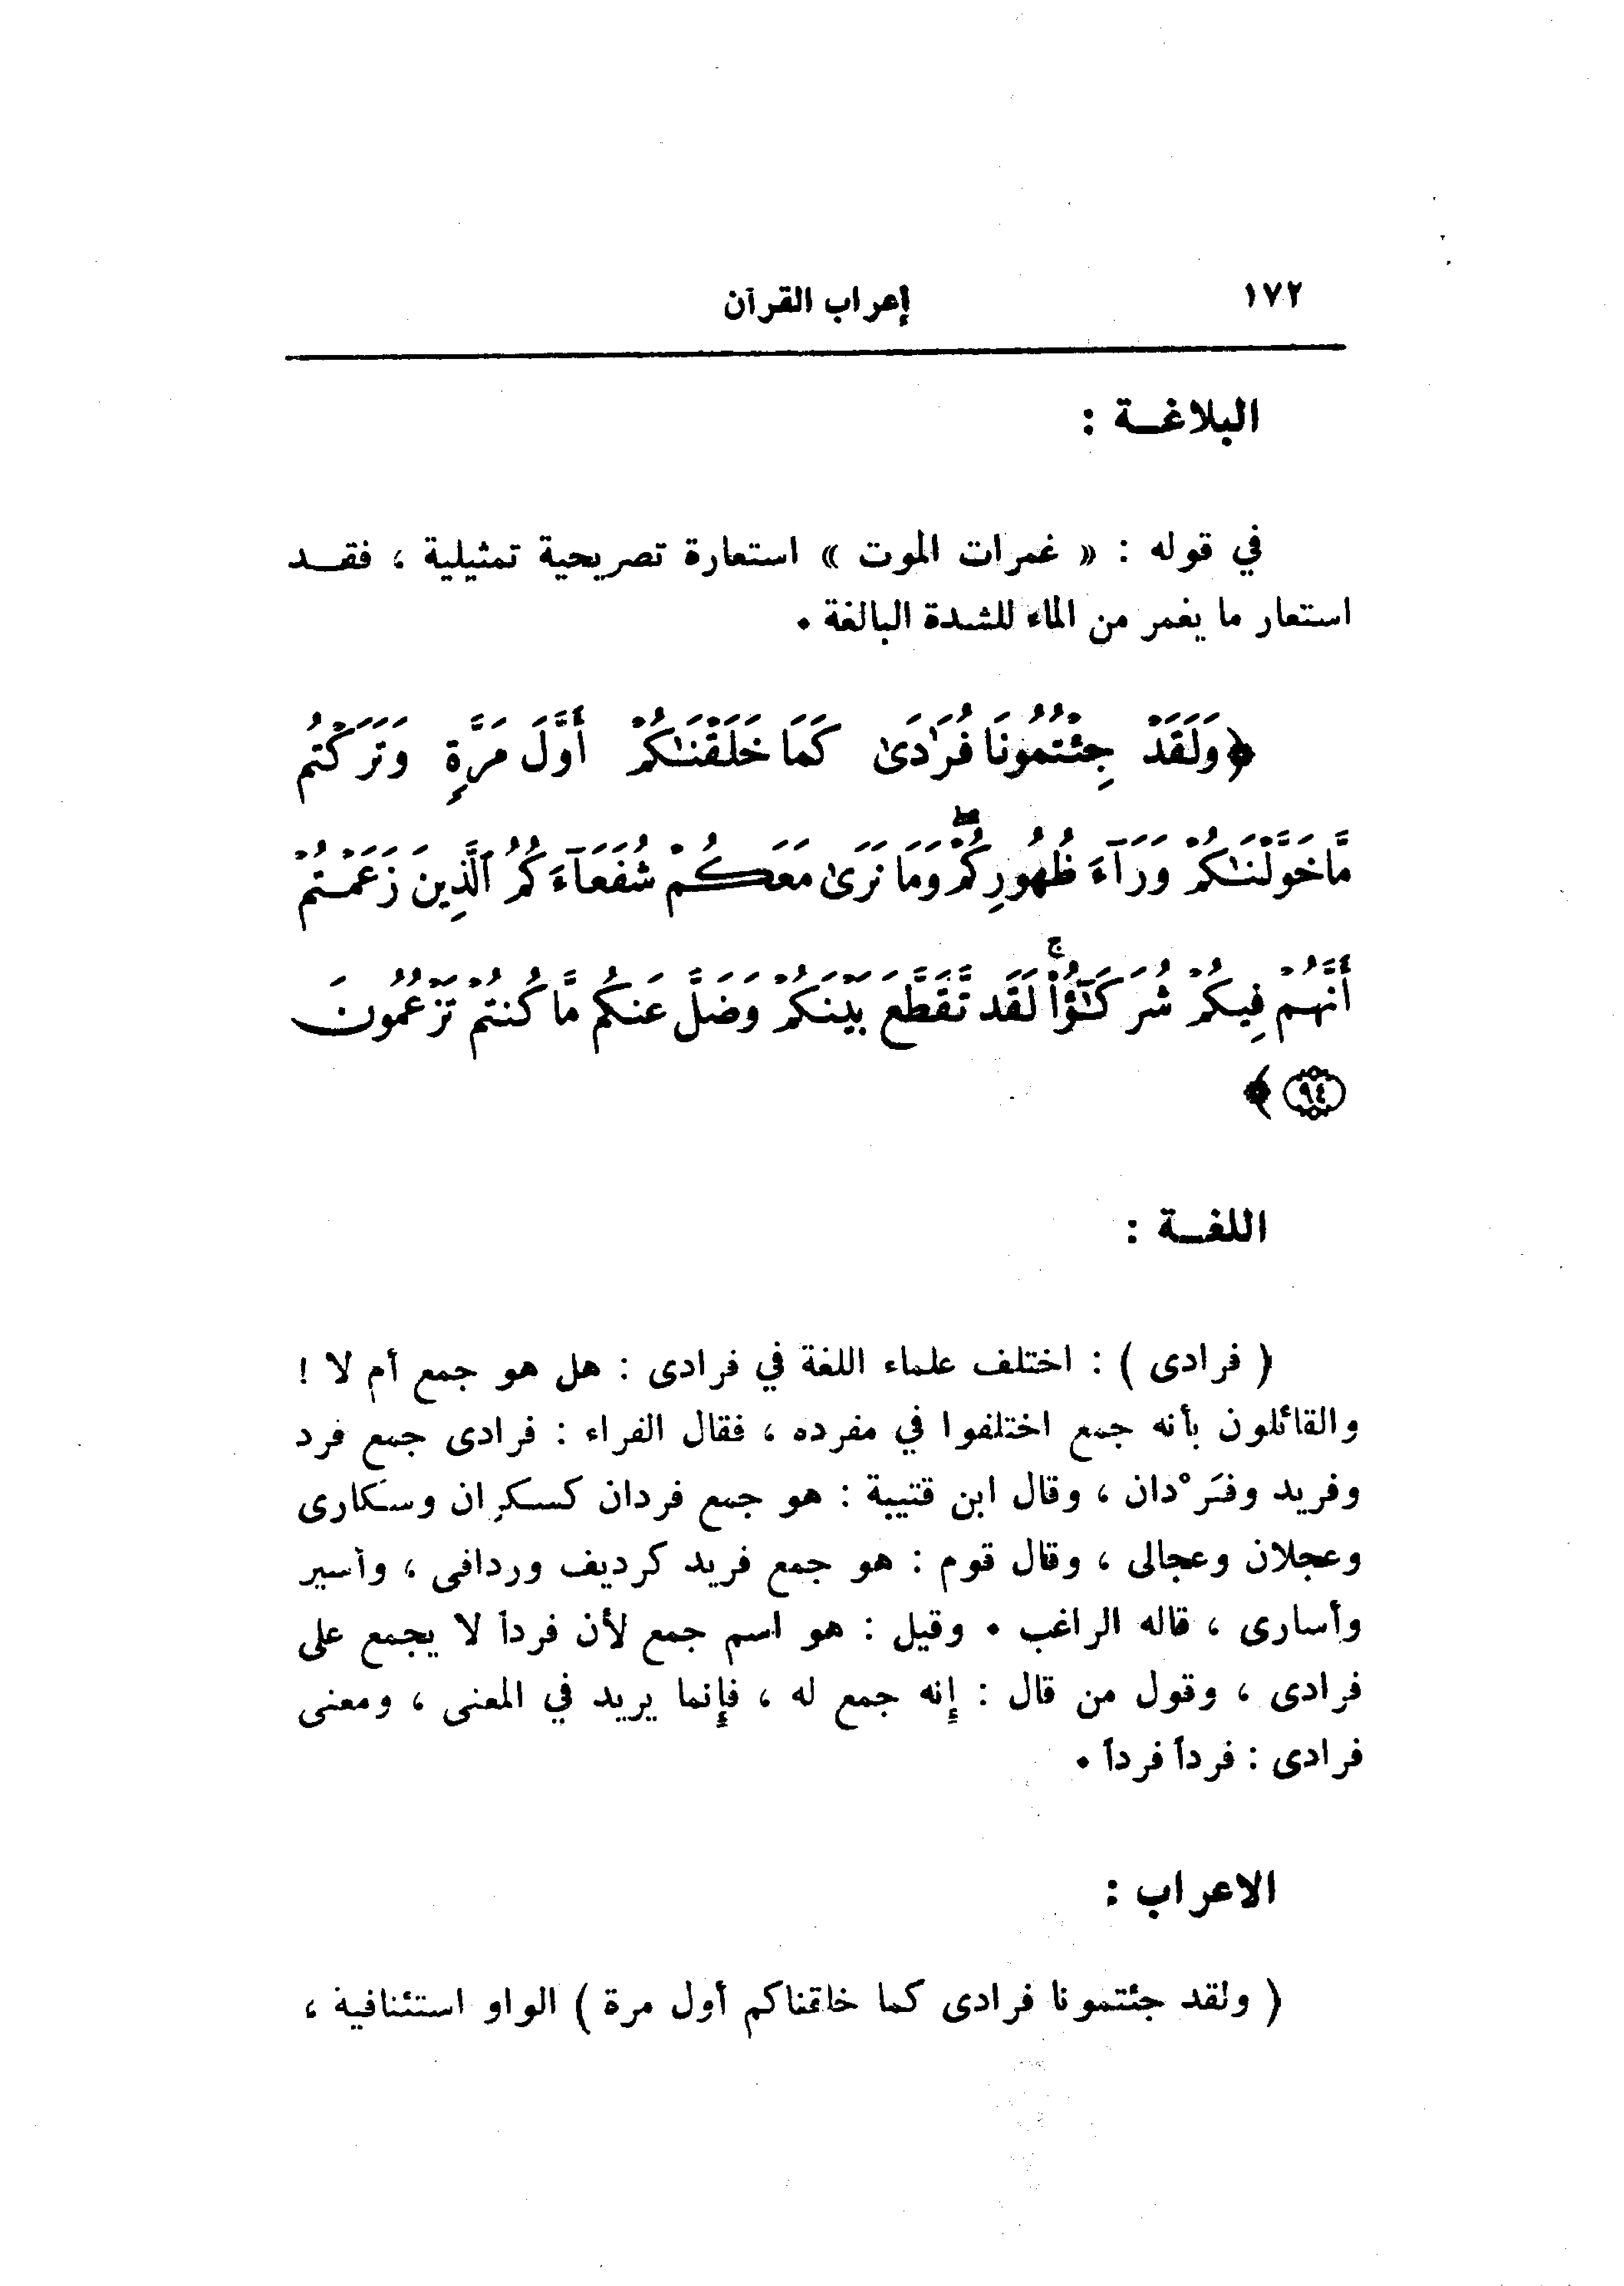 ١٧٢ إعراب القرآن
البلاغـة :
في قوله : « غمرات الموت » استعارة تصريحية تمثيلية ، فقـد
استعار ما يغمر من الماء للشدة البالغة .
﴿وَلَقَدْ جِئْتُمُونَا فُرَٰدَىٰ كَمَا خَلَقْنَـٰكُمْ أَوَّلَ مَرَّةٍ وَتَرَكْتُم
مَّا خَوَّلْنَـٰكُمْ وَرَآءَ ظُهُورِكُمْۖ وَمَا نَرَىٰ مَعَكُمْ شُفَعَآءَكُمُ ٱلَّذِينَ زَعَمْتُمْ
أَنَّهُمْ فِيكُمْ شُرَكَـٰٓؤُا۟ۚ لَقَد تَّقَطَّعَ بَيْنَكُمْ وَضَلَّ عَنكُم مَّا كُنتُمْ تَزْعُمُونَ
٩٤ ﴾
اللغـة :
( فرادى ) : اختلف علماء اللغة في فرادى : هل هو جمع أم لا !
والقائلون بأنه جمع اختلفوا في مفرده ، فقال الفراء : فرادى جمع فرد
وفريد وفَرْدان ، وقال ابن قتيبة : هو جمع فردان كسكران وسَكارى
وعجلان وعجالى ، وقال قوم : هو جمع فريد كرديف وردافى ، وأسير
وأسارى ، قاله الراغب . وقيل : هو اسم جمع لأن فرداً لا يجمع على
فرادى ، وقول من قال : إنه جمع له ، فإنما يريد في المعنى ، ومعنى
فرادى : فرداً فرداً .
الاعراب :
( ولقد جئتمونا فرادى كما خلقناكم أول مرة ) الواو استئنافية ،